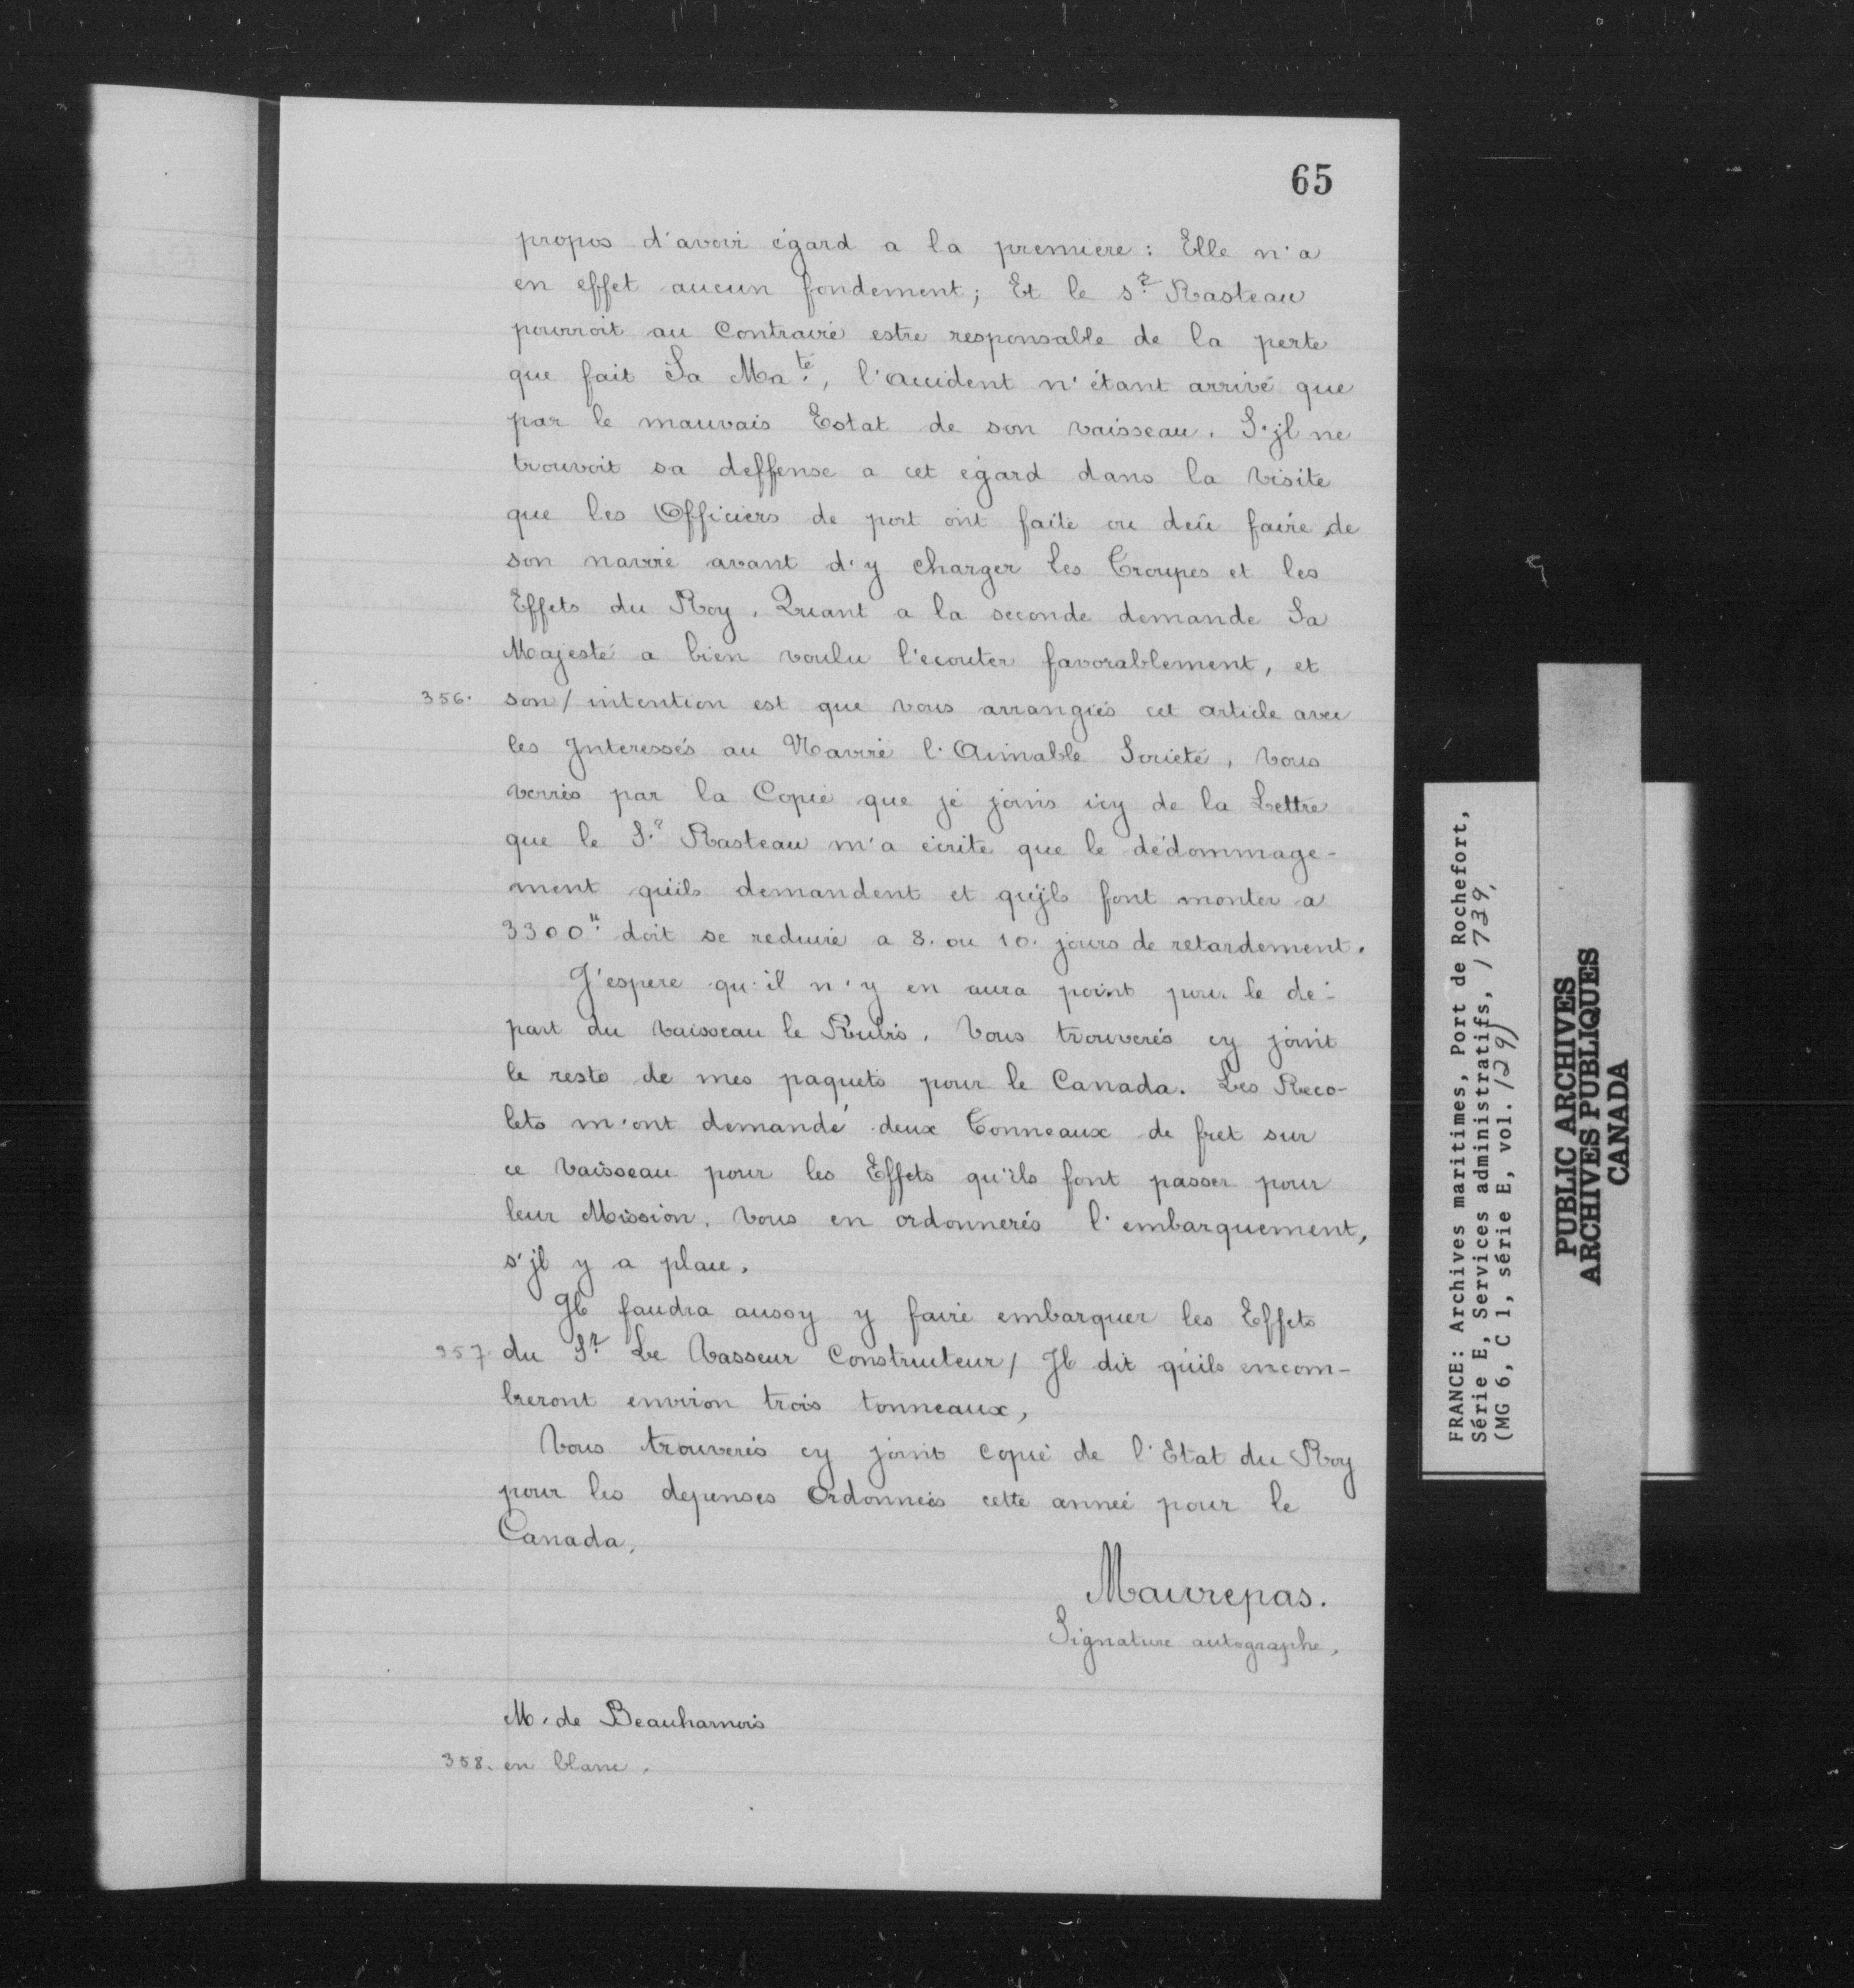 65
propos d'avoir égard a la premiere : Elle n'a
en effet aucun fondement ; Et le s.r Rasteau
pourroit au Contraire estre responsable de la perte
que fait Sa Ma.té, l'accident n'étant arrivé que
par le mauvais Estat de son vaisseau. S'jl ne
trouvoit sa deffense a cet egard dans la visite
que les Officiers de port ont faite ou deû faire de
son navire avant d'y charger les Troupes et les
Effets du Roy. Quant a la seconde demande Sa
Majesté a bien voulu l'ecouter favorablement, et
356. son / intention est que vous arrangiés cet article avec
les Interessés au Navire l'Aimable Societé, vous
verrés par la Copie que je joins icy de la Lettre
que le S.r Rasteau m'a écrite que le dédommage-
ment qu'ils demandent et qu'jls font monter a
3300.tt doit se reduire a 8. ou 10. jours de retardement.
J'espere qu'il n'y en aura point pour le dé-
part du vaisseau le Rubis. Vous trouverés cy joint
le reste de mes paquets pour le Canada. Les Reco-
lets m'ont demandé deux Tonneaux de fret sur
ce vaisseau pour les Effets qu'ils font passer pour
leur Mission. Vous en ordonnerés l'embarquement,
s'jl y a place.
Jl faudra aussy y faire embarquer les Effets
357. du S.r Le Vasseur Constructeur / Jl dit qu'ils encom-
breront environ trois tonneaux,
Vous trouverés cy joint copie de l'Etat du Roy
pour les depenses Ordonnées cette année pour le
Canada.
Maurepas.
Signature autographe.
M. de Beauharnois
358. en blanc.
FRANCE: Archives maritimes, Port de Rochefort,
Série E, Services administratifs, 1739,
(MG 6, C 1, série E, vol. 129)
PUBLIC ARCHIVES
ARCHIVES PUBLIQUES
CANADA